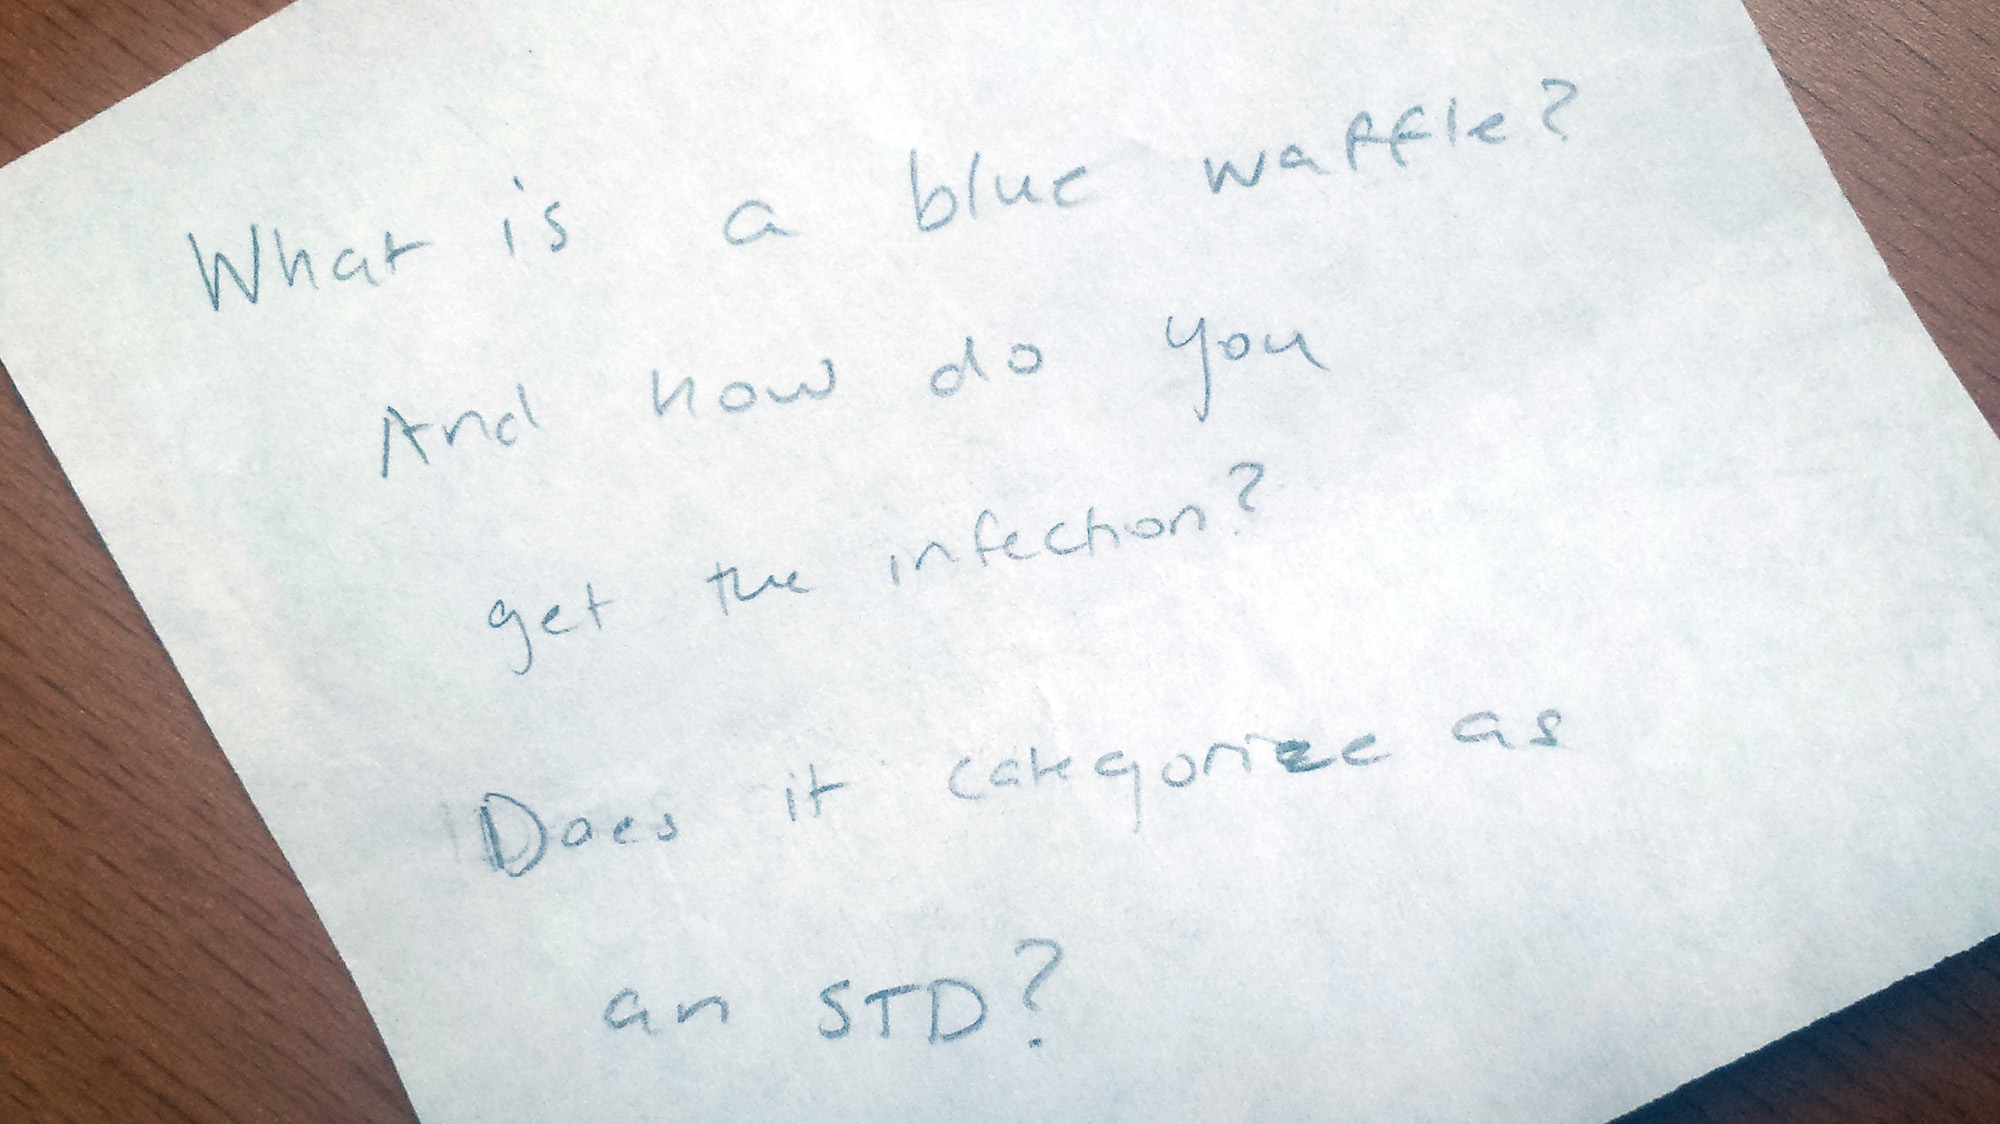 What is a blue waffle?
And how do you
get the infection?
Does it categorize as
an STD?